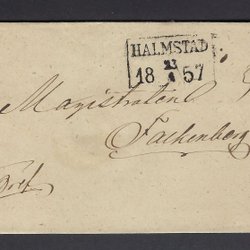 HALMSTAD
18 57
Magistraten
Falkenberg